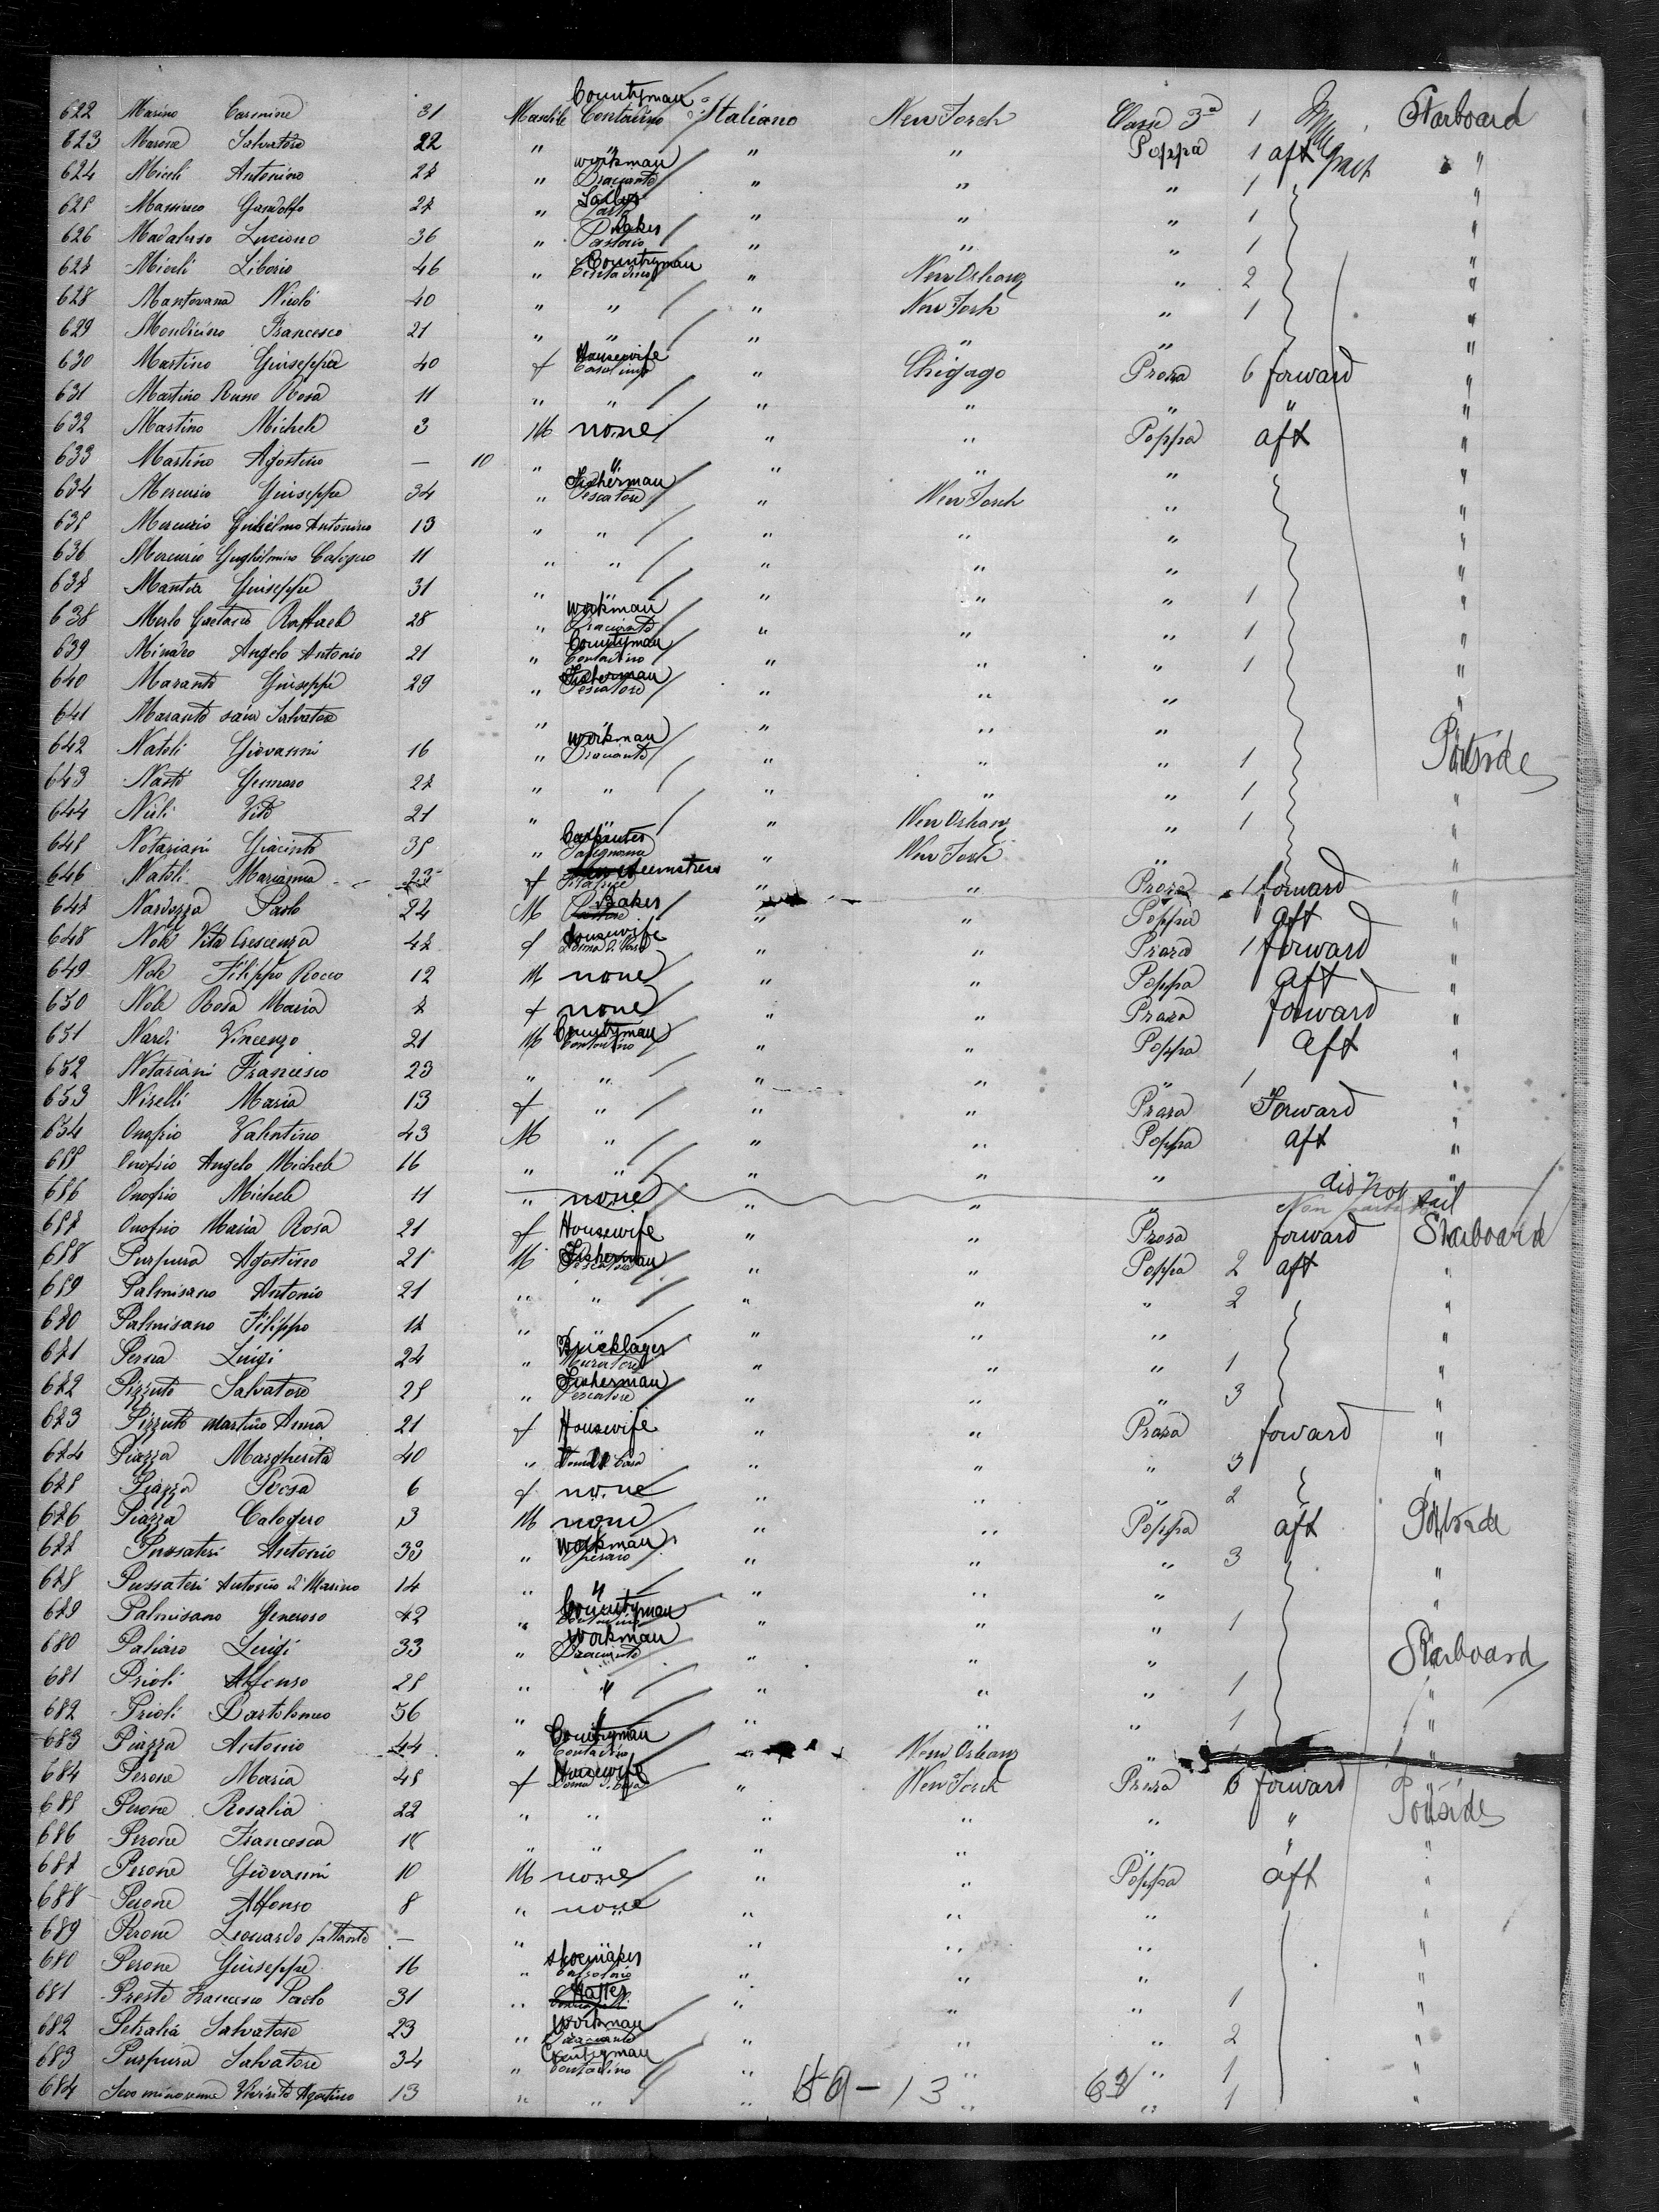 622 Marino Carmine 31 Maschile Countryman Contadino Italiano New Jorch Classe 3a 1 Starboard
623 Marosa Salvatore 22 " " " " Poppa 1 aft "
624 Miceli Antonino 27 " workman Bracciante " " " 1 "
625 Massinco Gandolfo 27 " Sailor " " " 1 "
626 Madaluso Luciano 36 " Baker Pastaio " " " 1 "
627 Miceli Liborio 46 " Countryman Contadino " New Orleans " 2 "
628 Mantovana Nicolò 40 " " " New Jorch " 1 "
629 Mondicino Francesco 21 " " " " " "
630 Martino Giuseppa 40 f Housewife Casalinga " Chigago Prora 6 forward "
631 Martino Russo Rosa 11 " " " " " " "
632 Martino Michele 3 M none " " Poppa aft "
633 Martino Agostino — 10 " " " " " "
634 Mercurio Giuseppe 34 " Fisherman Pescatore " New Jorch " "
635 Mercurio Gulielmo Antonino 13 " " " " " "
636 Mercurio Guglielmino Calogero 11 " " " " " "
637 Mantia Giuseppe 31 " " " " " 1 "
638 Merlo Gaetano Raffaele 28 " workman Bracciante " " " 1 "
639 Minaro Angelo Antonio 21 " Countryman Contadino " " " 1 "
640 Maranto Giuseppe 29 " Fisherman Pescatore " " " "
641 Maranto Salvatore " " "
642 Natoli Giovanni 16 " workman Bracciante " " " 1 Portside
643 Nasti Gennaro 27 " " " " " 1 "
644 Nuli Vito 21 " " " New Orleans " 1 "
645 Notariani Giacinto 35 " Carpenter Falegname " New Jorch " "
646 Natoli Marianna 23 f Seemstress " " Prora 1 forward "
647 Nardozza Paolo 24 M Baker " " Poppa aft "
648 Nolè Vita Crescenza 47 f Housewife Donna di Casa " " Prora 1 forward "
649 Nole Filippo Rocco 12 M none " " Poppa aft "
650 Nole Rosa Maria 7 f none " " Prora forward "
651 Nardi Vincenzo 21 M Countryman Contadino " " Poppa aft "
652 Notariani Francesco 23 " " " " " 1 "
653 Niselli Maria 13 f " " " Prora Forward "
654 Onofrio Valentino 43 M " " " Poppa aft "
655 Onofrio Angelo Michele 16 " " " " " "
656 Onofrio Michele 11 " none " " " did not sail
657 Onofrio Maria Rosa 21 f Housewife " " Prora forward Starboard
658 Purpura Agostino 21 M Fisherman Pescatore " " Poppa 2 aft "
659 Palmisano Antonio 21 " " " " " 2 "
670 Palmisano Filippo 17 " " " " " "
671 Perna Luigi 24 " Bricklayer Muratore " " " 1 "
672 Pizzuto Salvatore 25 " Fisherman Pescatore " " " 3 "
673 Pizzuto Martino Anna 21 f Housewife " " Prora forward "
674 Piazza Margherita 40 " Donna di Casa " " " 3 "
675 Piazza Rosa 6 f none " " " 2 "
676 Piazza Calogero 3 M none " " Poppa aft Portside
677 Pussateri Antonio 33 " workman Operaio " " " 3 "
678 Pussateri Antonio di Marino 14 " " " " " "
679 Palmisano Generoso 42 " Countryman Contadino " " " 1
680 Paliaro Luigi 33 " workman Bracciante " " " Starboard
681 Prioli Alfonso 25 " " " " " 1 "
682 Prioli Bartolomeo 56 " " " " " 1 "
683 Piazza Antonio 44 " Countryman Contadino " New Orleans " "
684 Perone Maria 45 f Housewife Donna di Casa " New Jorch Prora 6 forward Portside
685 Perone Rosalia 22 " " " " " "
686 Perone Francesca 18 " " " " " " "
687 Perone Giovanni 10 M none " " Poppa aft "
688 Perone Alfonso 8 " none " " " "
689 Perone Leonardo lattante — " " " " "
680 Perone Giuseppe 16 " shoemaker Calzolaio " " " "
681 Preste Francesco Paolo 31 " Hatter " " " 1 "
682 Petralia Salvatore 23 " workman Bracciante " " " 2 "
683 Purpura Salvatore 34 " Countryman Contadino " " " 1 "
684 Agostino 13 " " " " " 1 "
59 - 13